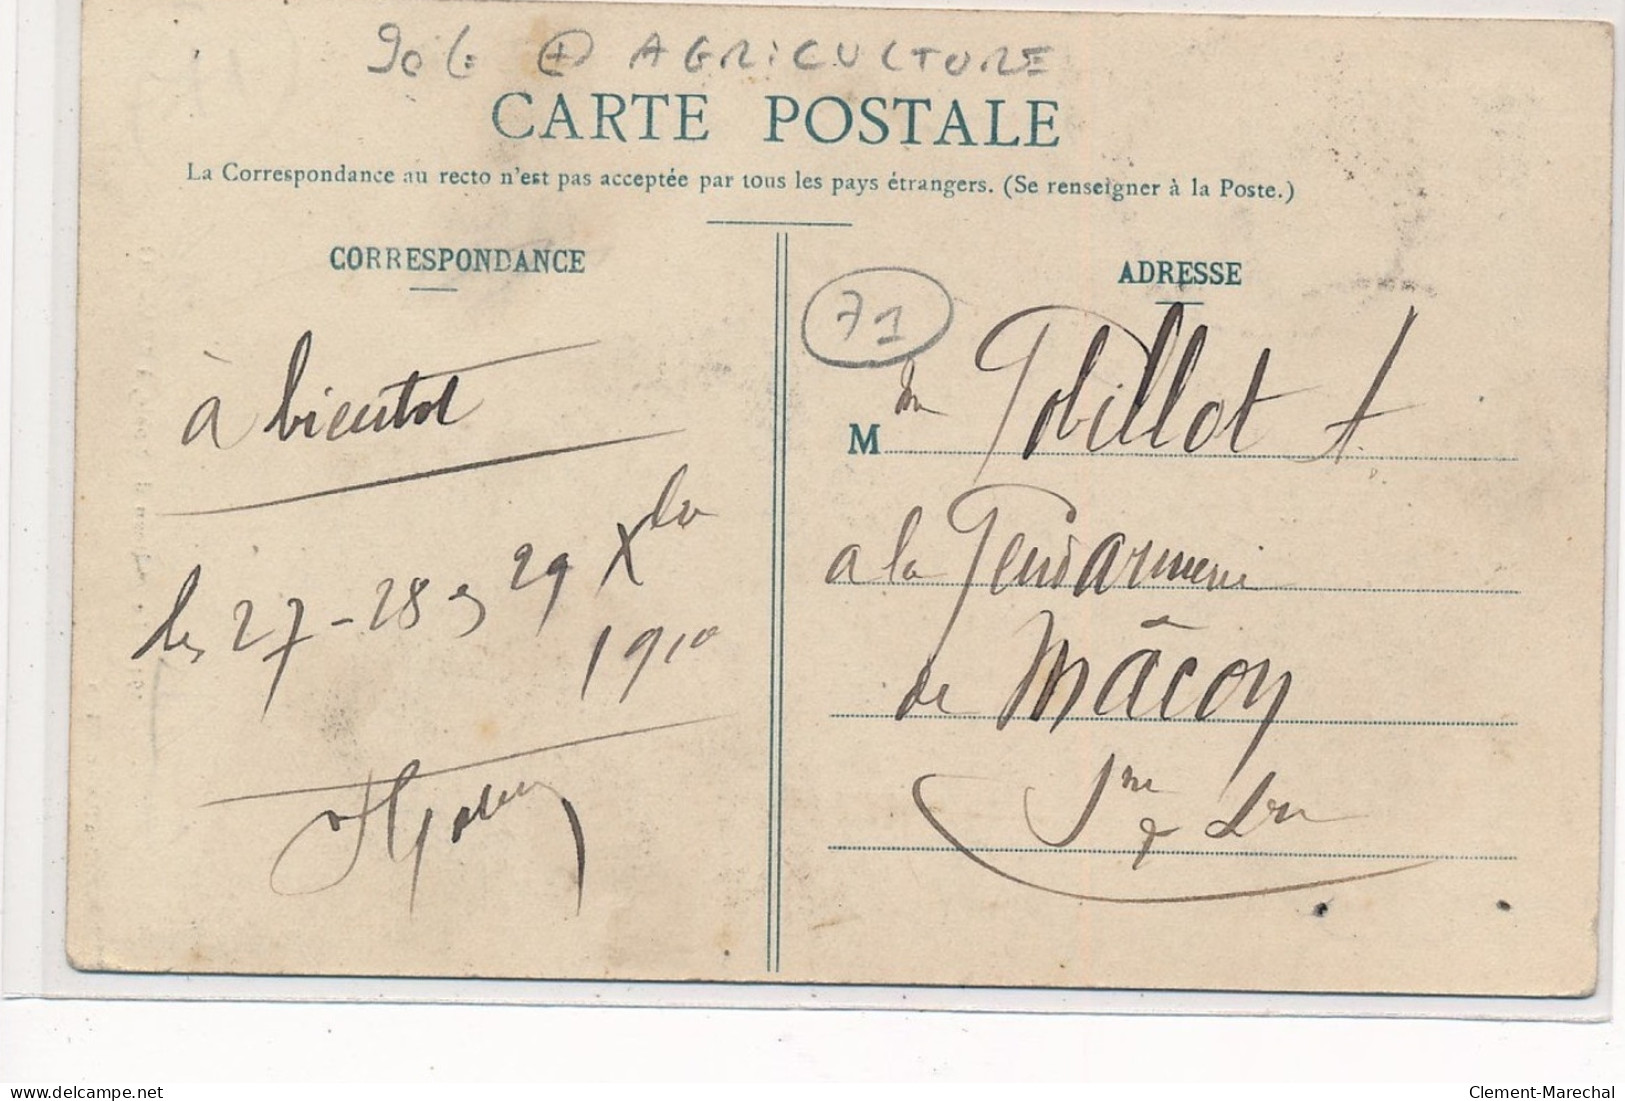 90 € + AGRICULTURE
CARTE POSTALE
La Correspondance au recto n'est pas acceptée par tous les pays étrangers. (Se renseigner à la Poste.)
CORRESPONDANCE
à bientot
les 27-28 & 29 Xbre
1910
ADRESSE
71
M
Gobillot A.
a la Gendarmerie
de Mâcon
Sne & Lre
delcampe.net
Clement-Marechal